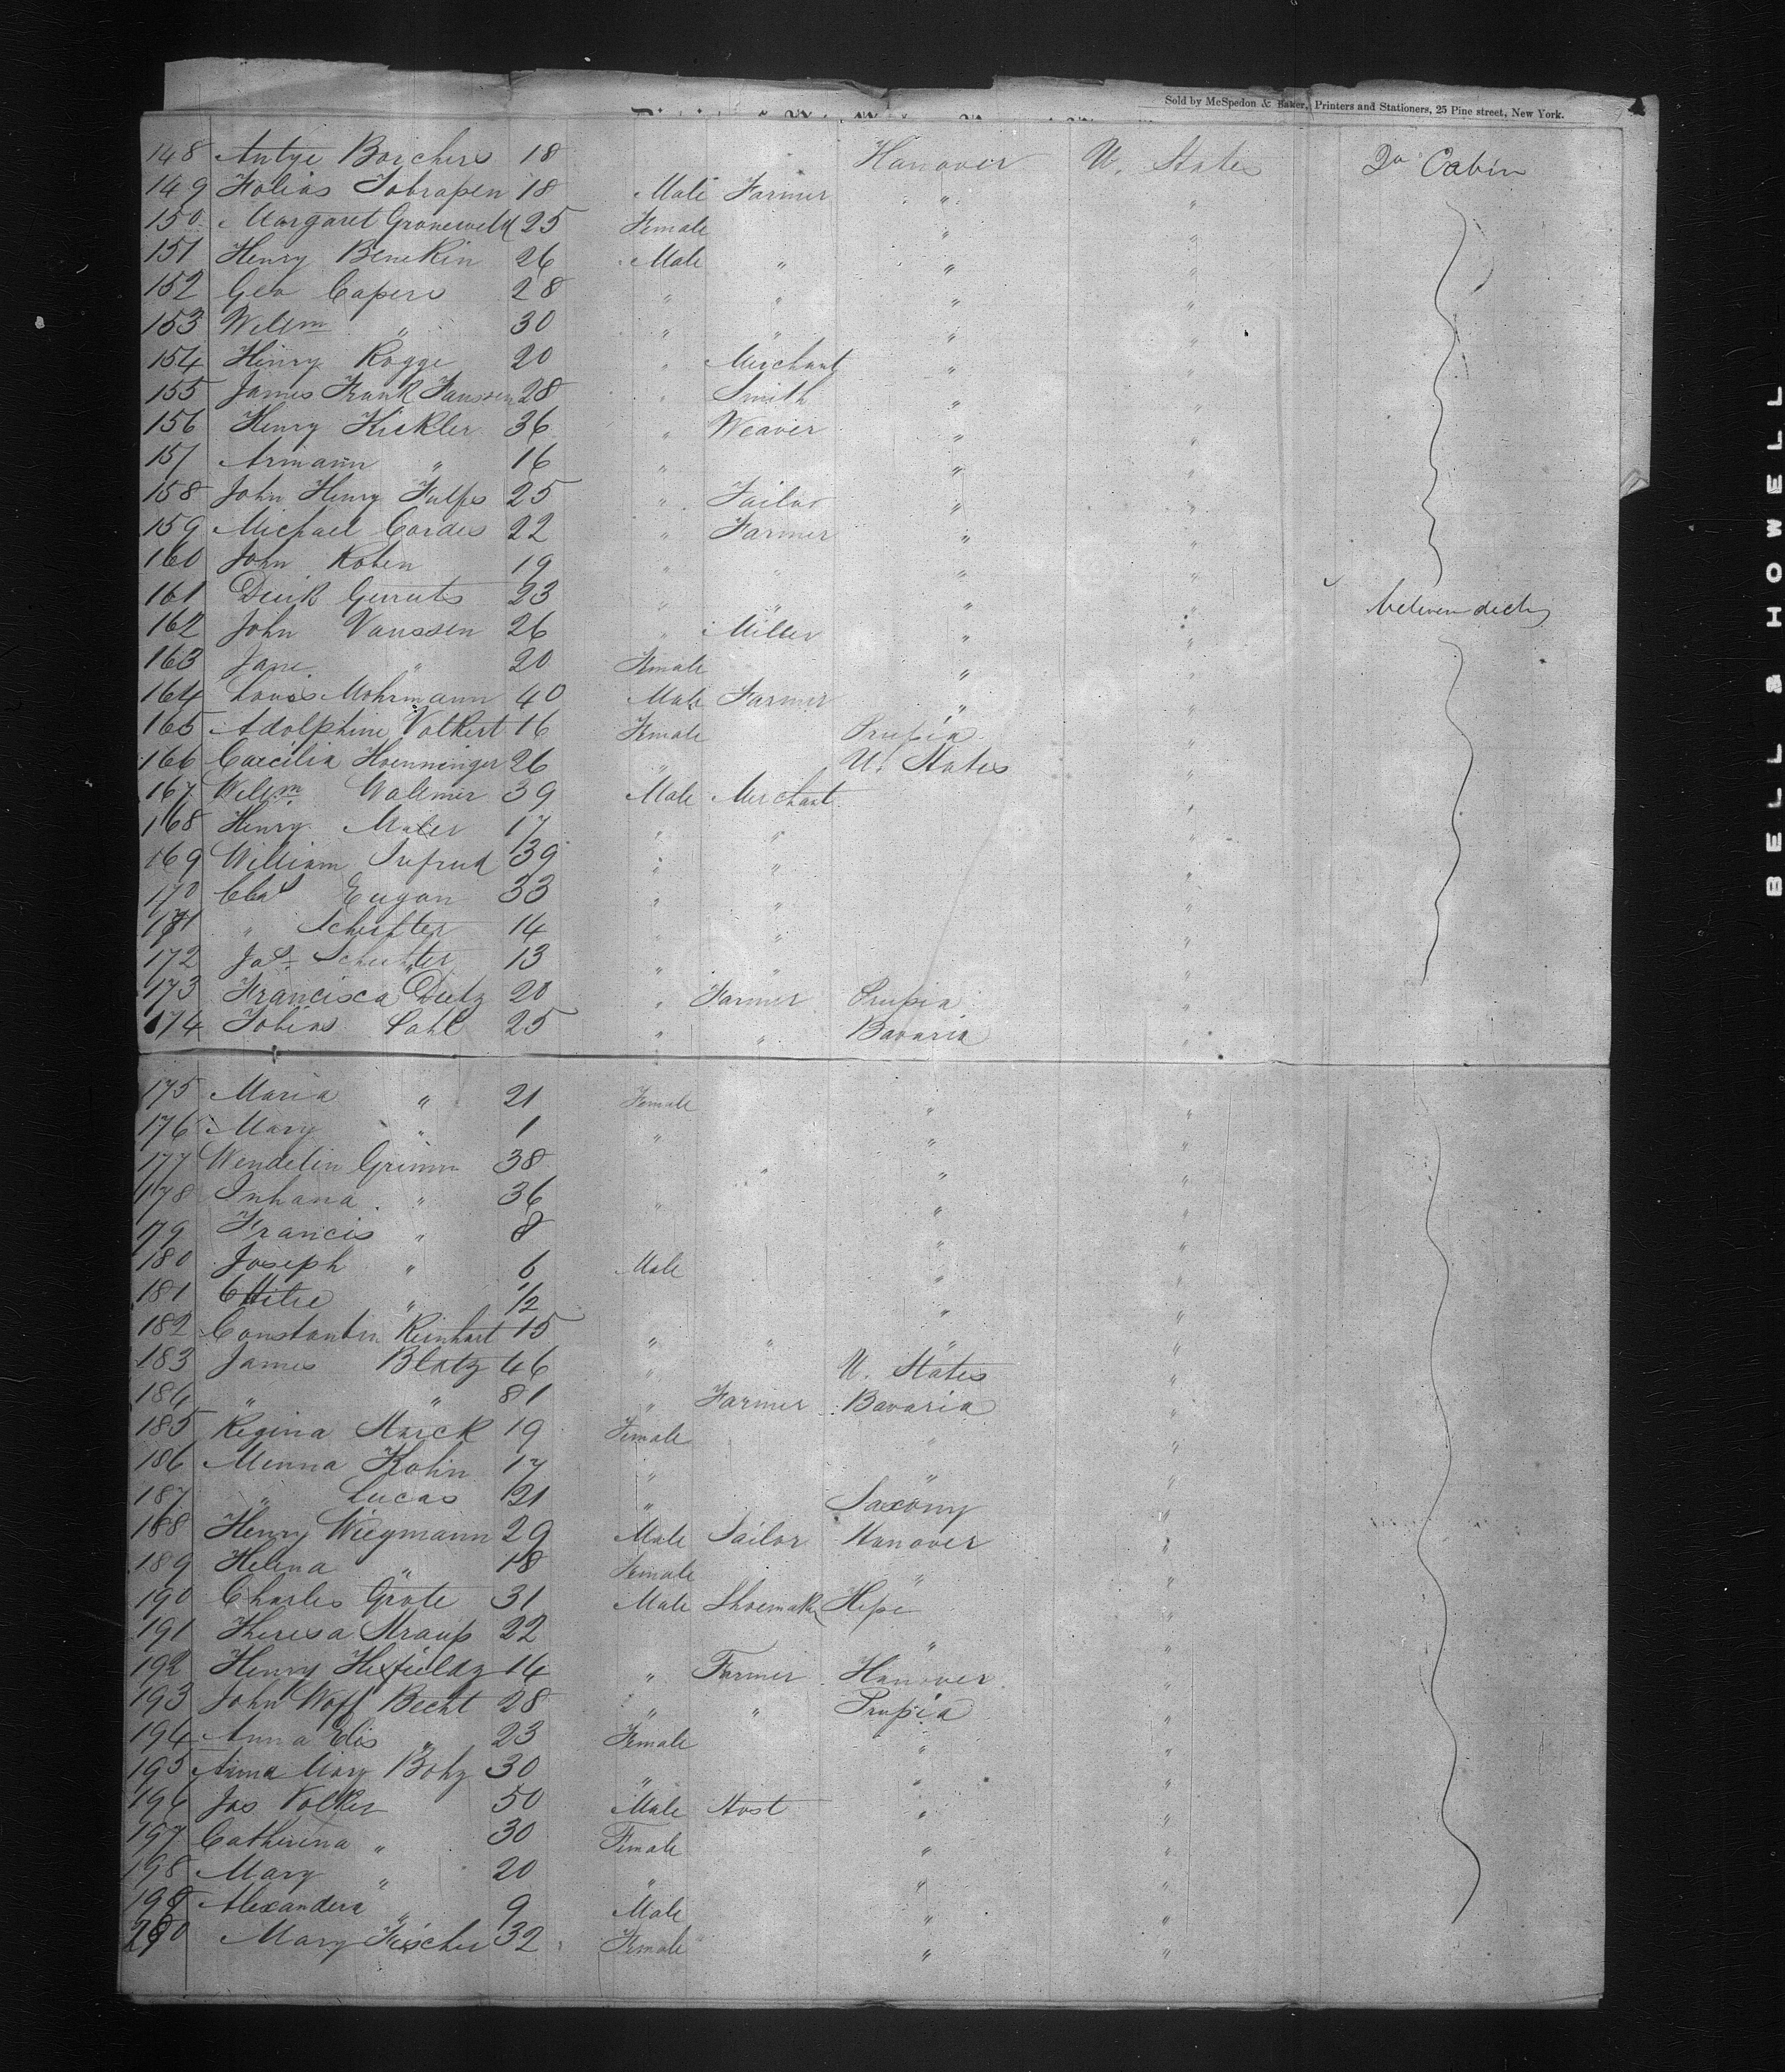 Sold by McSpedon & Baker, Printers and Stationers, 25 Pine street, New York.
148 Antye Borchers 18 Hanover U. States 2d Cabin
149 Tobias 18 Male Farmer " "
150 Margaret Groneweld 25 Female " "
151 Henry Benekin 26 Male " " "
152 Geo Capers 28 " " " "
153 Willm " 30 " " " "
154 Henry Rogge 20 " Merchant " "
155 James Frank Janssen 28 " Smith " "
156 Henry Kickler 36 " Weaver " "
157 Armann " 16 " " "
158 John Henry Fulfs 25 " Tailor " "
159 Michael Cordes 22 " Farmer " "
160 John Roben 19 " " " "
161 Dirk Gerruts 23 " " " " between decks
162 John Vanssen 26 " Miller " "
163 Jane " 20 Female " "
164 Louis Mohrmann 40 Male Farmer " "
165 Adolphine Volkert 16 Female Prussia "
166 Caecilia Hoenninger 26 " U. States "
167 Willm Wallmer 39 Male Merchant "
168 Henry Maler 17 " " "
169 William 39 " " "
170 Chas Eugon 33 " " "
171 " Schuhter 14 " " "
172 Jas. Schuhter 13 " " "
173 Francisca Dietz 20 " Farmer Prussia "
174 Tobias Pahl 25 " " Bavaria "
175 Maria " 21 Female " "
176 Mary " 1 " " "
177 Wendelin Grimm 38 " " "
178 Johana " 36 " " "
179 Francis " 8 " "
180 Joseph " 6 Male " "
181 Ottilie " 1/2 " "
182 Constantin Reinhart 15 " " " "
183 James Blatz 46 " U. States "
184 " " 81 " Farmer Bavaria "
185 Regina Starck 19 Female " "
186 Menna Kohn 17 " " "
187 " Lucas 21 " Saxony "
188 Henry Wiegmann 29 Male Tailor Hanover "
189 Helena " 18 Female " "
190 Charles Grote 31 Male Shoemaker Hesse "
191 Theresa Straus 22 " "
192 Henry 14 " Farmer Hanover "
193 John Woff Becht 28 " " Prussia "
194 Anna Elis " 23 Female " "
195 Anna Mary Bohz 30 " " "
196 Jos Volker 50 Male Host " "
197 Catherina " 30 Female " "
198 Mary " 20 " " "
199 Alexandera " 9 Male " "
200 Mary Fischer 32 Female " "
BELL & HOWELL